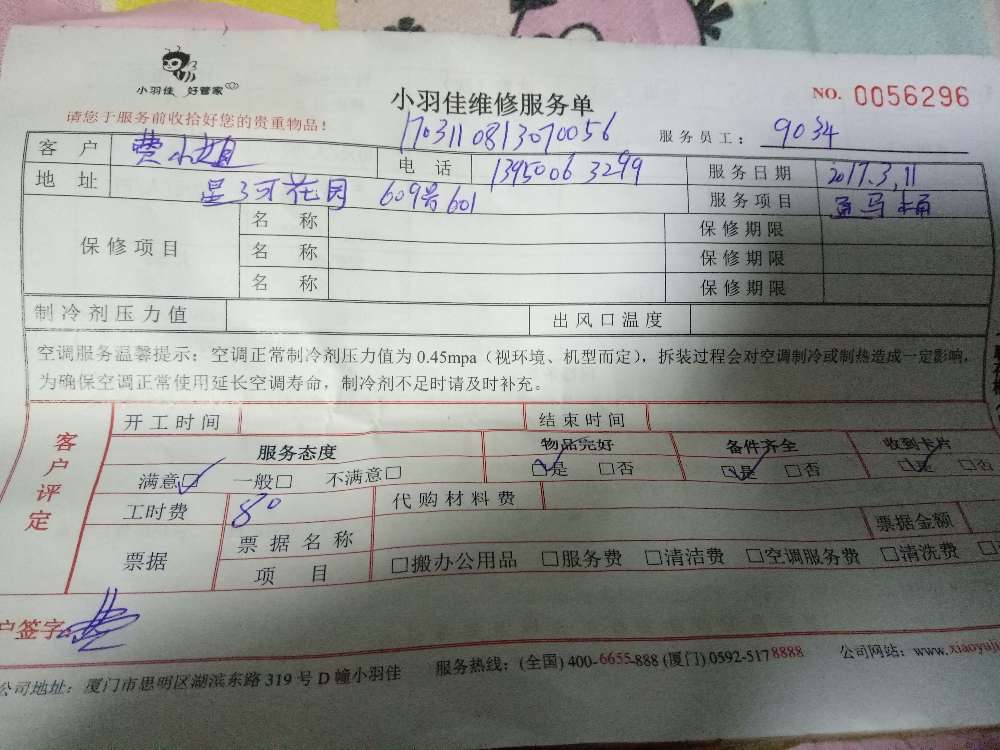 小羽佳 好管家
小羽佳维修服务单
NO. 0056296
请您于服务前收拾好您的贵重物品！
1703110813070056
服务员工： 9034
客户 费小姐 电话 13950063299 服务日期 2017.3.11
地址 星河花园 609号601 服务项目 通马桶
保修项目 名称 保修期限
名称 保修期限
名称 保修期限
制冷剂压力值 出风口温度
空调服务温馨提示：空调正常制冷剂压力值为 0.45mpa（视环境、机型而定），拆装过程会对空调制冷或制热造成一定影响，
为确保空调正常使用延长空调寿命，制冷剂不足时请及时补充。
客户评定
开工时间 结束时间
服务态度 物品完好 备件齐全 收到卡片
满意☑ 一般□ 不满意□ ☑是 □否 ☑是 □否 ☑是 □否
工时费 80 代购材料费
票据 票据名称 票据金额
项目 □搬办公用品 □服务费 □清洁费 □空调服务费 □清洗费
户签字： 费
公司地址：厦门市思明区湖滨东路 319 号 D 幢小羽佳 服务热线：(全国) 400-6655-888 (厦门) 0592-5178888 公司网站：www.xiaoyuji